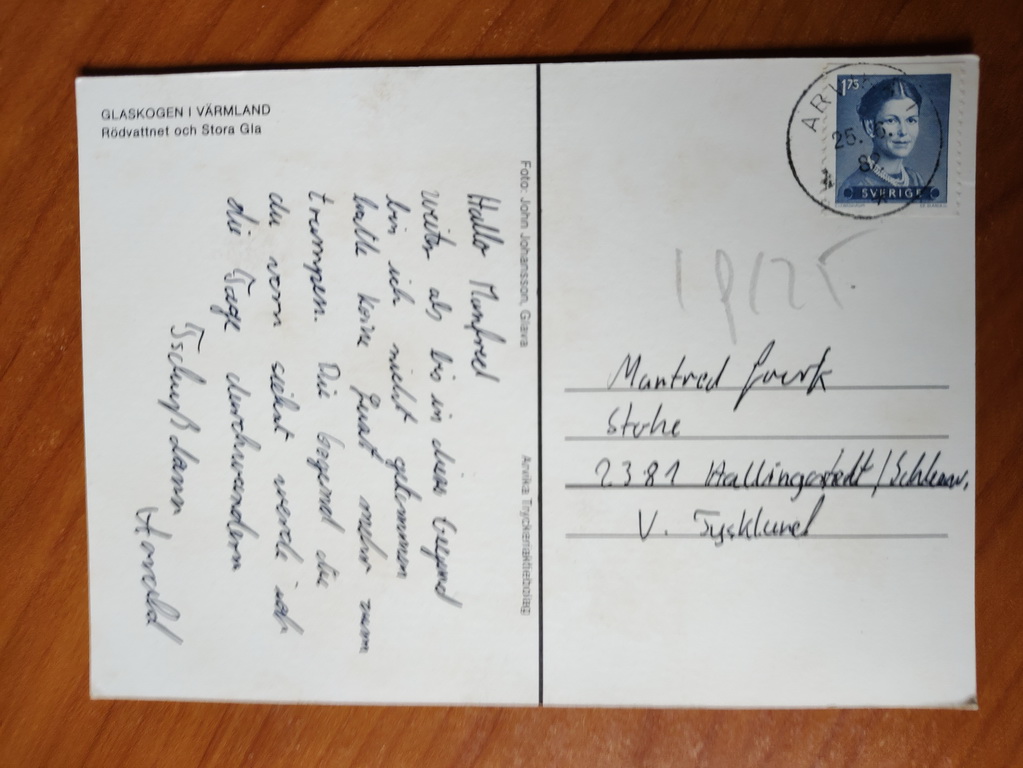 GLASKOGEN I VÄRMLAND
Rödvattnet och Stora Gla
Hallo Manfred
weiter als bis in diese Gegend
bin ich nicht gekommen
hatte keine Lust mehr zum
trampen. Die Gegend die
du vorn siehst werde ich
die Tage durchwandern
Tschüß dann
Harald
Foto: John Johansson, Glava
Arvika Tryckeriaktiebolag
ARV
25.
82
1,75
SVERIGE
Manfred
Stohe
2381 Hallingstedt/Schlesw.
V. Tyskland